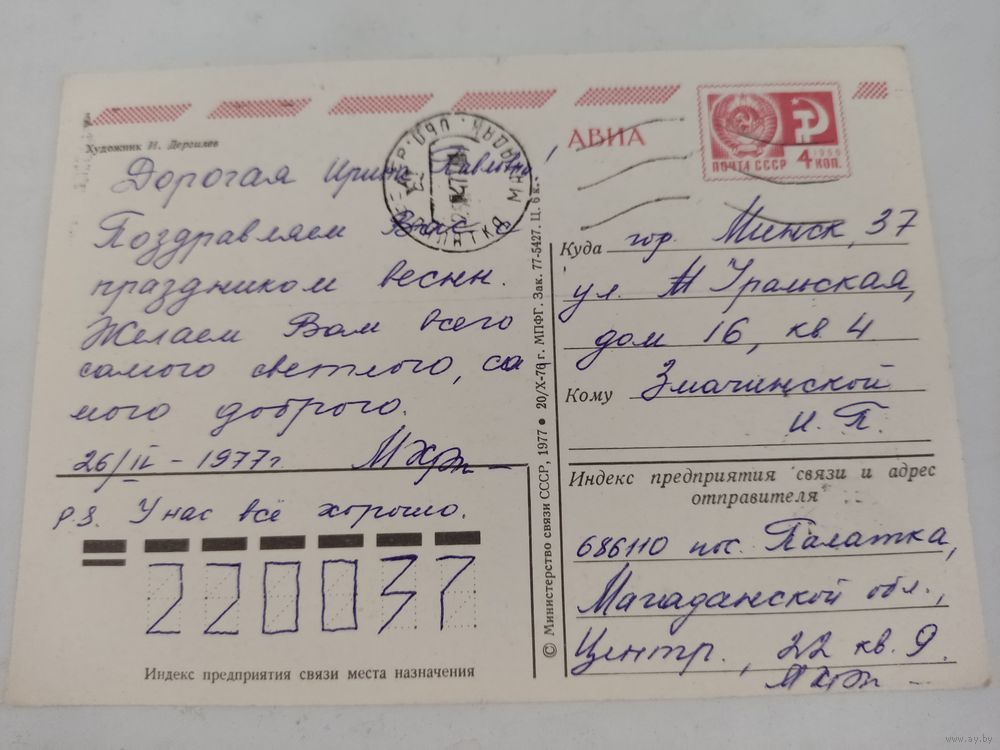 Художник И. Дергилев
АВИА
1966
ПОЧТА СССР 4 КОП.
Дорогая Ирина Павловна,
Поздравляем Вас с
праздником весны.
Желаем Вам всего
самого светлого, са
мого доброго.
26/II - 1977г.
P.S. У нас всё хорошо.
220037
Индекс предприятия связи места назначения
© Министерство связи СССР, 1977 ● 20/X-76 г. МПФГ. Зак. 77-5427. Ц. 6 к.
Куда гор. Минск, 37
ул. М Уральская,
дом 16, кв 4
Кому Змачинской
И. П.
Индекс предприятия связи и адрес
отправителя
686110 пос. Палатка,
Магаданской обл.,
Центр., 22 кв. 9.
www.ay.by